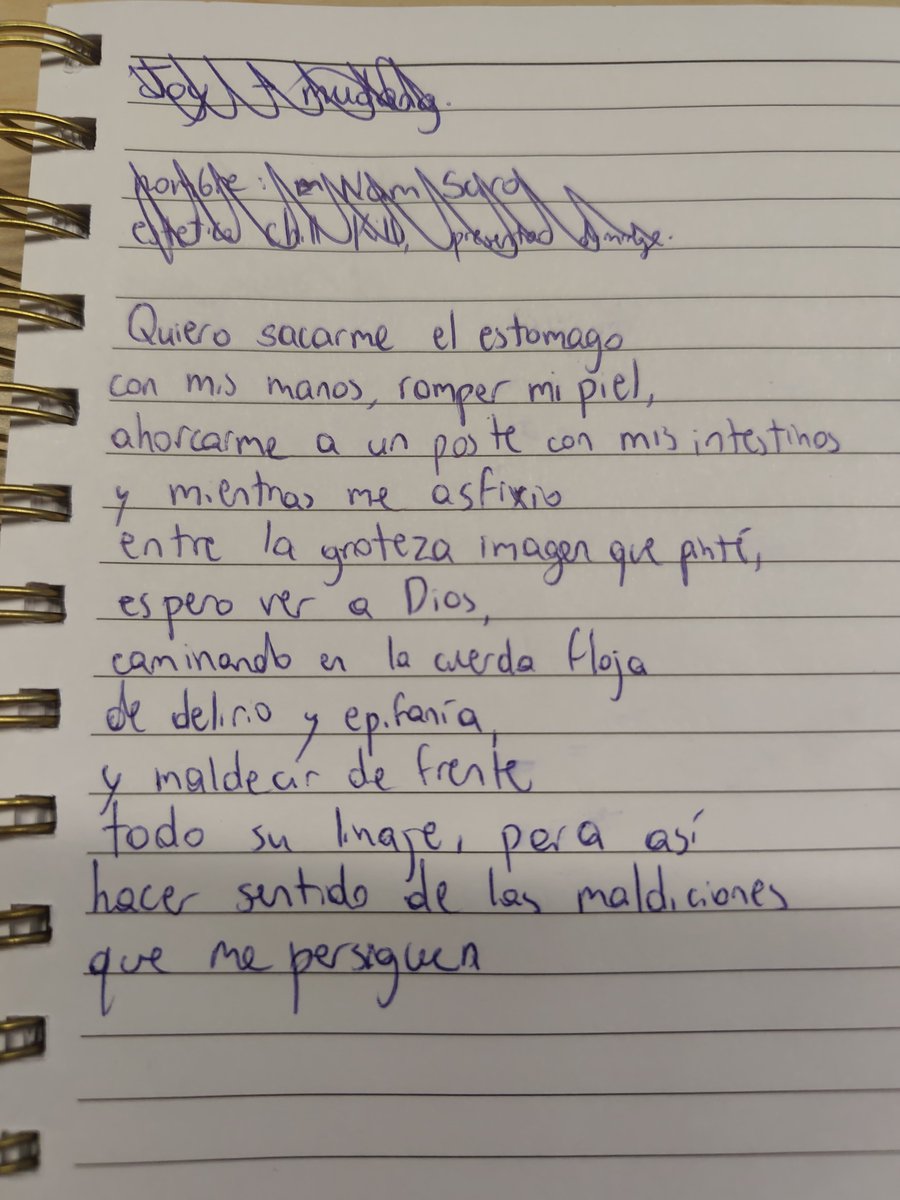 Quiero sacarme el estomago
con mis manos, romper mi piel,
ahorcarme a un poste con mis intestinos
y mientras me asfixio
entre la groteza imagen que pinté,
espero ver a Dios,
caminando en la cuerda floja
de delirio y epifanía,
y maldecir de frente
todo su linaje, pera así
hacer sentido de las maldiciones
que me persiguen